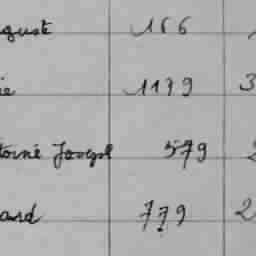 guste 166 1
ie 1179 3
toine Joseph 579 2
ard 779 2